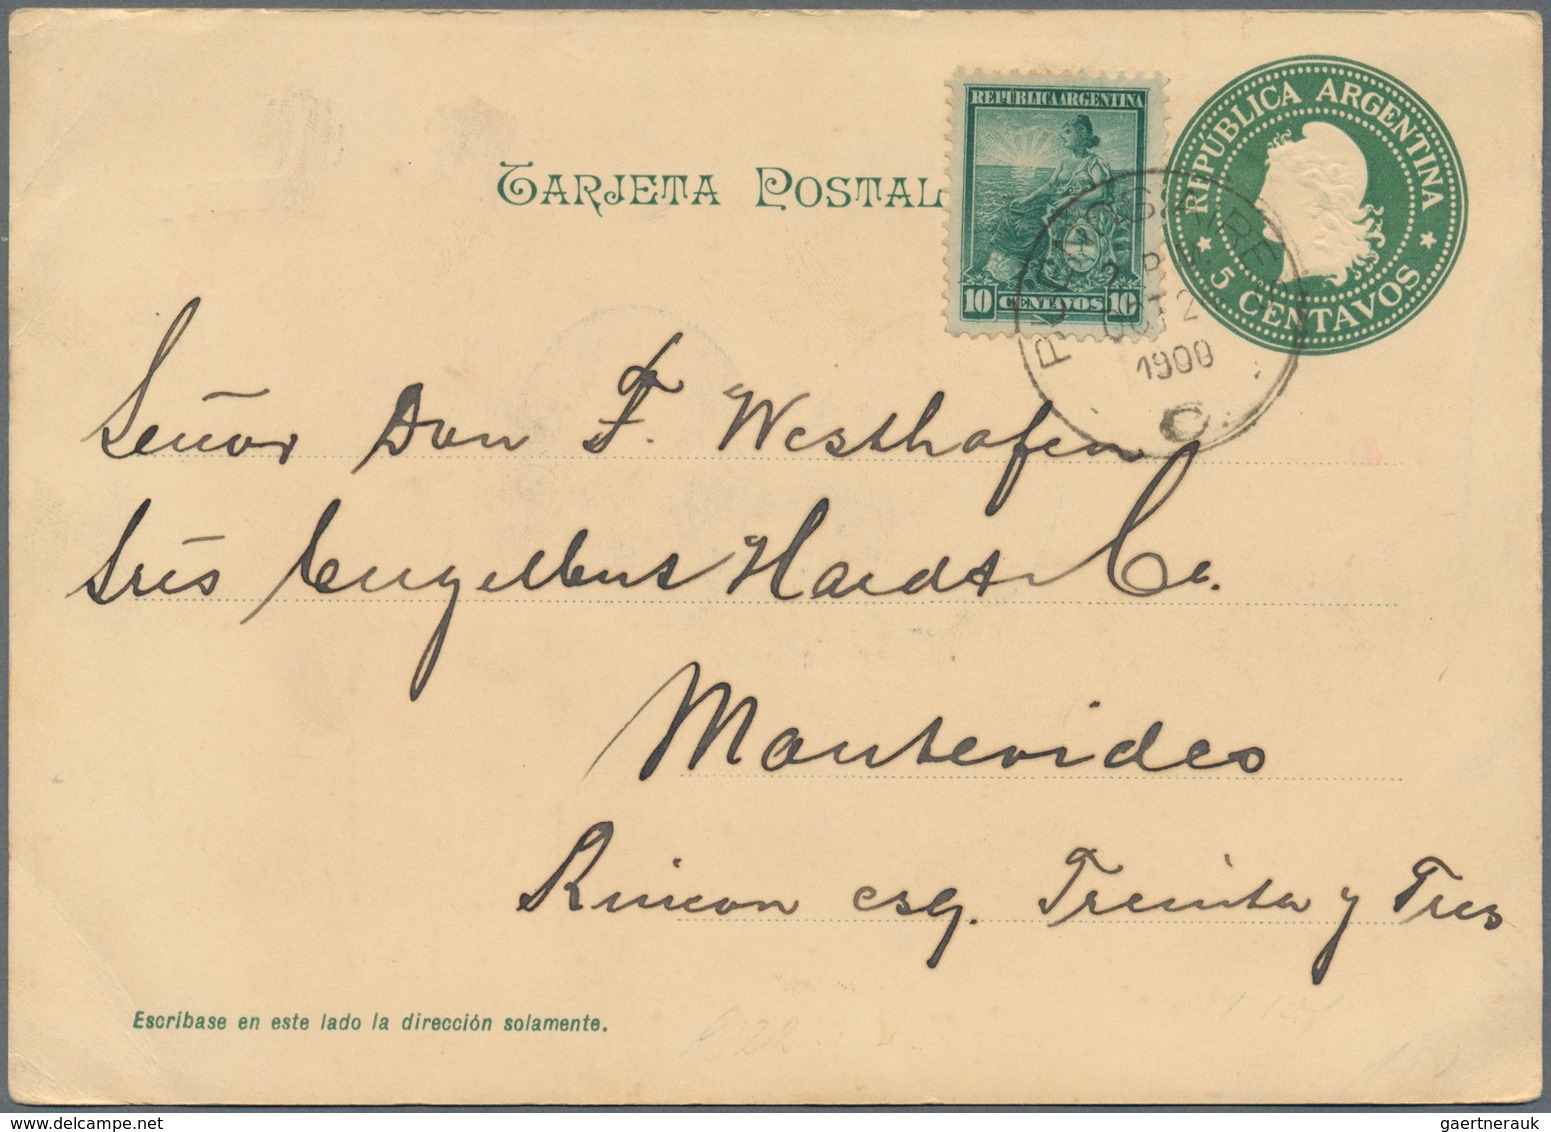 REPUBLICA ARGENTINA
10 CENTAVOS 10
REPUBLICA ARGENTINA
5 CENTAVOS
TARJETA POSTAL
BUENOS AIRES
2 P.M.
OCT 2
1900
C.
Señor Don F. Westhofen
Sres Engelbert Hardt & Co.
Montevideo
Rincon esq. Treinta y Tres
Escríbase en este lado la dirección solamente.
gaertnerauk@delcampe.net